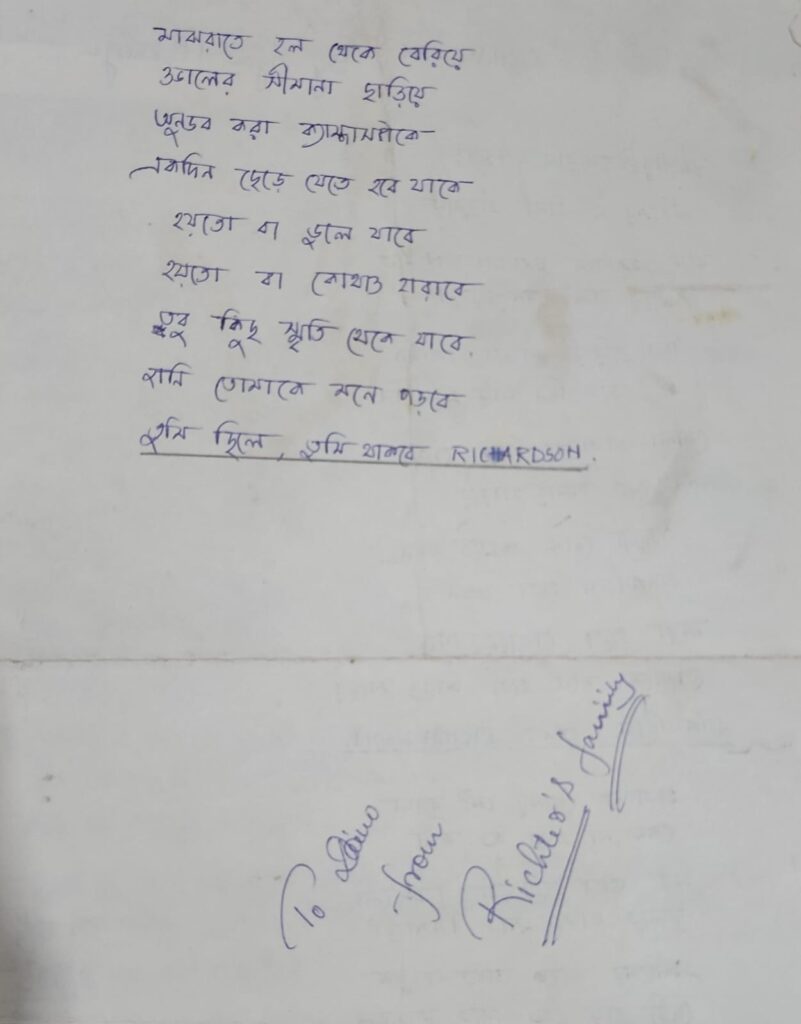 মাঝরাতে হল থেকে বেরিয়ে
ওভালের সীমানা ছাড়িয়ে
অনুভব করা ক্যাম্পাসটাকে
একদিন ছেড়ে যেতে হবে যাকে
হয়তো বা ভুলে যাবে
হয়তো বা কোথাও হারাবে
তবু কিছু স্মৃতি থেকে যাবে.
জানি তোমাকে মনে পড়বে
তুমি ছিলে, তুমি থাকবে RICHARDSON.
To
from
Richter's family